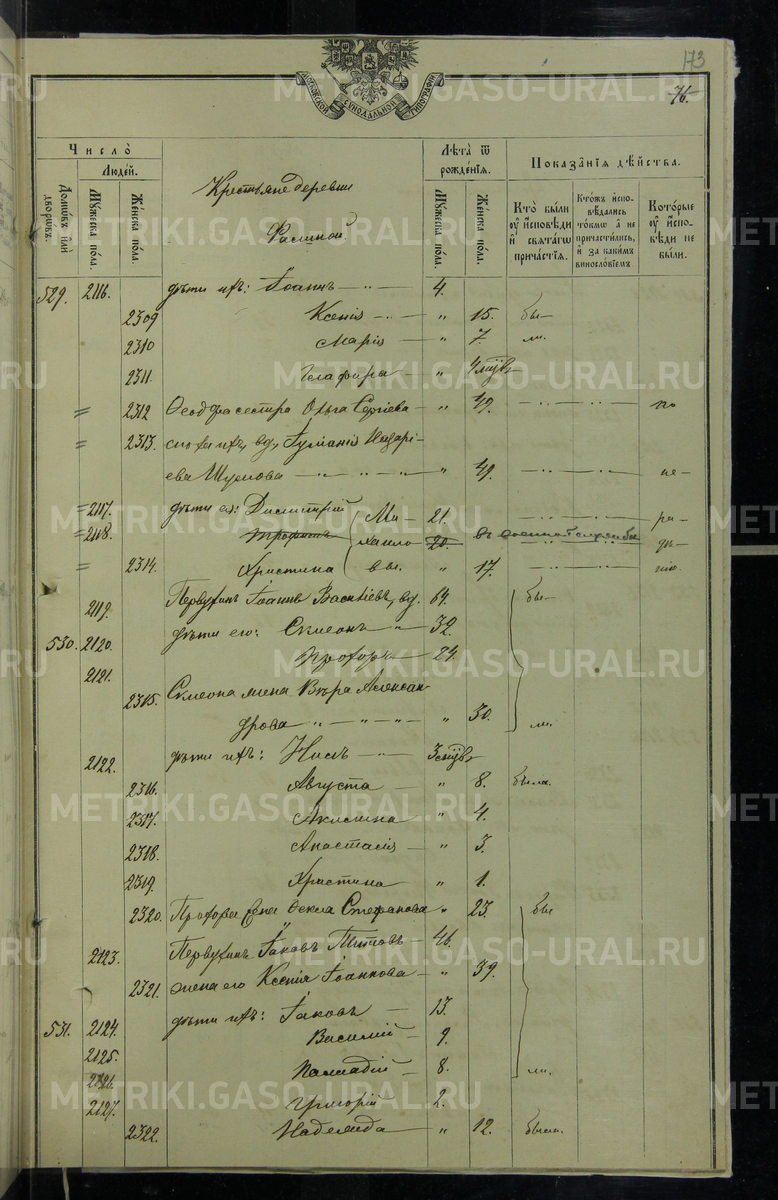 173
76.
МОСКОВСКОЙ СѴНОДАЛЬНОЙ ТИПОГРАФІИ
Число̀
Людей.
Домѡвъ и҆лѝ дворѡвъ.
Мꙋжеска по́ла.
Же́нска по́ла.
Крестьяне деревни
Лѣта̀ ѿ рожде́нїѧ.
Мꙋжеска по́ла.
Же́нска по́ла.
Показа̑нїѧ дѣ́йства.
Кто̀ бы́ли ᲂу҆ и҆сповѣди и҆ свѧта́гѡ причастїѧ.
Кто́жъ и҆сповѣдались то́кмѡ а҆ не причасти́лись, и҆ за каки́мъ винословїемъ
Кото́рые ᲂу҆ и҆сповѣди не были.
529. 2116. дѣти ихъ: Іоаннъ 4.
2309 Ксенія " 15. бы-
2310 Марія " 7. ли.
2311. Гелафира " 4 мѣс
" 2312 сестра Ольга Сергіева " 49. по
" 2313. сноха ихъ, вд, Іуліанія Назарі-
ева Шумова " 49. не-
" 2117. дѣти ея: Димитрій Ми- 21. ра-
" 2118. Трофимъ хаило 20. въ военной службѣ дѣ-
" 2314. Христина вы. " 17. нію.
2119. Первухинъ Іоаннъ Васильевъ, вд. 64. бы-
530. 2120. дѣти его: Симеонъ 32.
2121. Прохоръ 24.
2315. Симеона жена Вѣра Алексан-
дрова " 30. ли.
2122. дѣти ихъ: Нилъ
2316. Августа " 8. была.
2317. Акилина " 4.
2318. Анастасія " 3.
2319. Христина " 1.
2320. Прохора жена Ѳекла Стефанова " 23. бы
2123. Первухинъ Іаковъ Титовъ 46.
2321. жена его Ксенія Іоаннова " 39.
531. 2124. дѣти ихъ: Іаковъ 13.
2125. Василій 9.
2126. Палладій 8. ли.
2127. Григорій 2.
2322. Надежда " 12. была.
METRIKI.GASO-URAL.RU